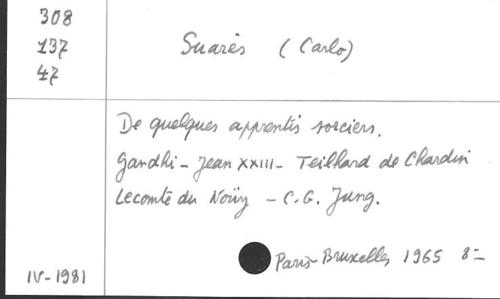 308
137
47
Suarès (Carlo)
De quelques apprentis sorciers.
Gandhi - Jean XXIII - Teilhard de Chardin
Lecomte du Noüy - C.G. Jung.
Paris Bruxelles 1965 8=
IV-1981